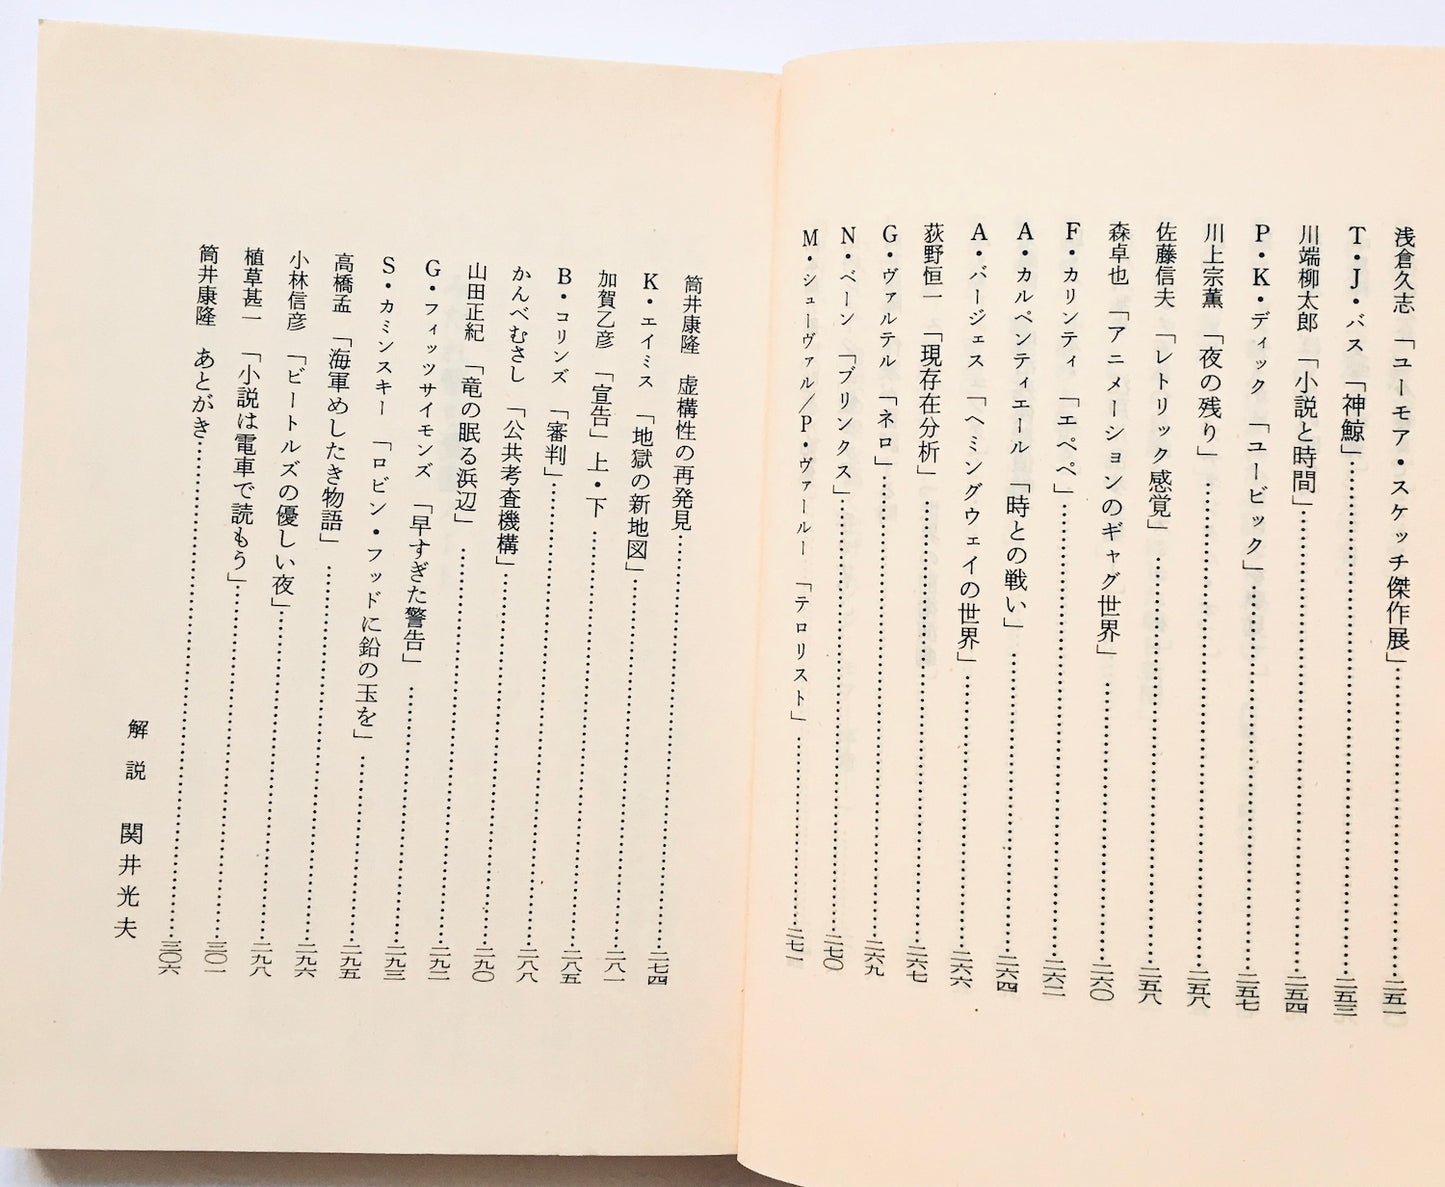 浅倉久志「ユーモア・スケッチ傑作展」……二五一
T・J・バス「神鯨」……二五三
川端柳太郎「小説と時間」……二五四
P・K・ディック「ユービック」……二五七
川上宗薫「夜の残り」……二五八
佐藤信夫「レトリック感覚」……二五八
森卓也「アニメーションのギャグ世界」……二六〇
F・カリンティ「エペペ」……二六二
A・カルペンティエール「時との戦い」……二六四
A・バージェス「ヘミングウェイの世界」……二六六
荻野恒一「現存在分析」……二六七
G・ヴァルテル「ネロ」……二六九
N・ベーン「ブリンクス」……二七〇
M・シューヴァル／P・ヴァールー「テロリスト」……二七一
筒井康隆 虚構性の再発見……二七四
K・エイミス「地獄の新地図」……二八一
加賀乙彦「宣告」上・下……二八五
B・コリンズ「審判」……二八八
かんべむさし「公共考査機構」……二九〇
山田正紀「竜の眠る浜辺」……二九二
G・フィッツサイモンズ「早すぎた警告」……二九三
S・カミンスキー「ロビン・フッドに鉛の玉を」……二九五
高橋孟「海軍めしたき物語」……二九六
小林信彦「ビートルズの優しい夜」……二九八
植草甚一「小説は電車で読もう」……三〇一
筒井康隆 あとがき……三〇六
解説 関井光夫